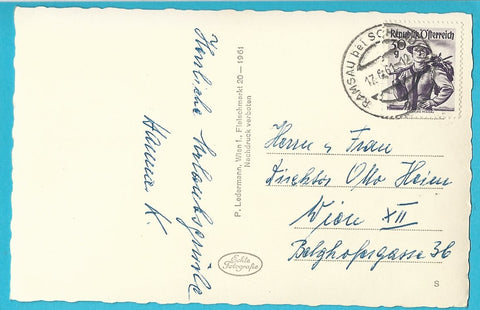 Herzliche Urlaubsgrüße
Hanna K.
P. Ledermann, Wien I., Fleischmarkt 20 — 1961
Nachdruck verboten
Echte
Fotografie
Republik Österreich
30 g
RAMSAU bei SCH
17.8.61-12
Herrn u Frau
Direktor Otto Heim
Wien XII
Belghofergasse 36
S